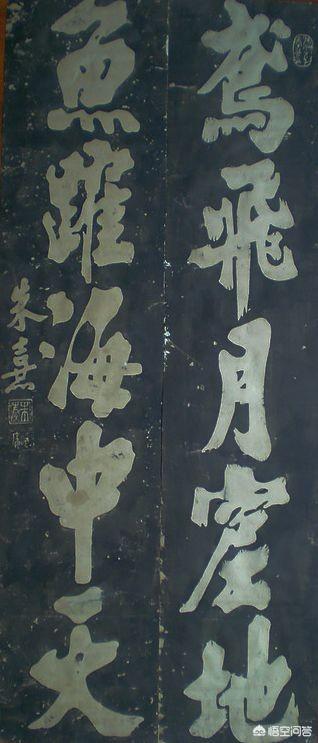 鸢飛月窟地
魚躍海中天
朱熹
悟空问答